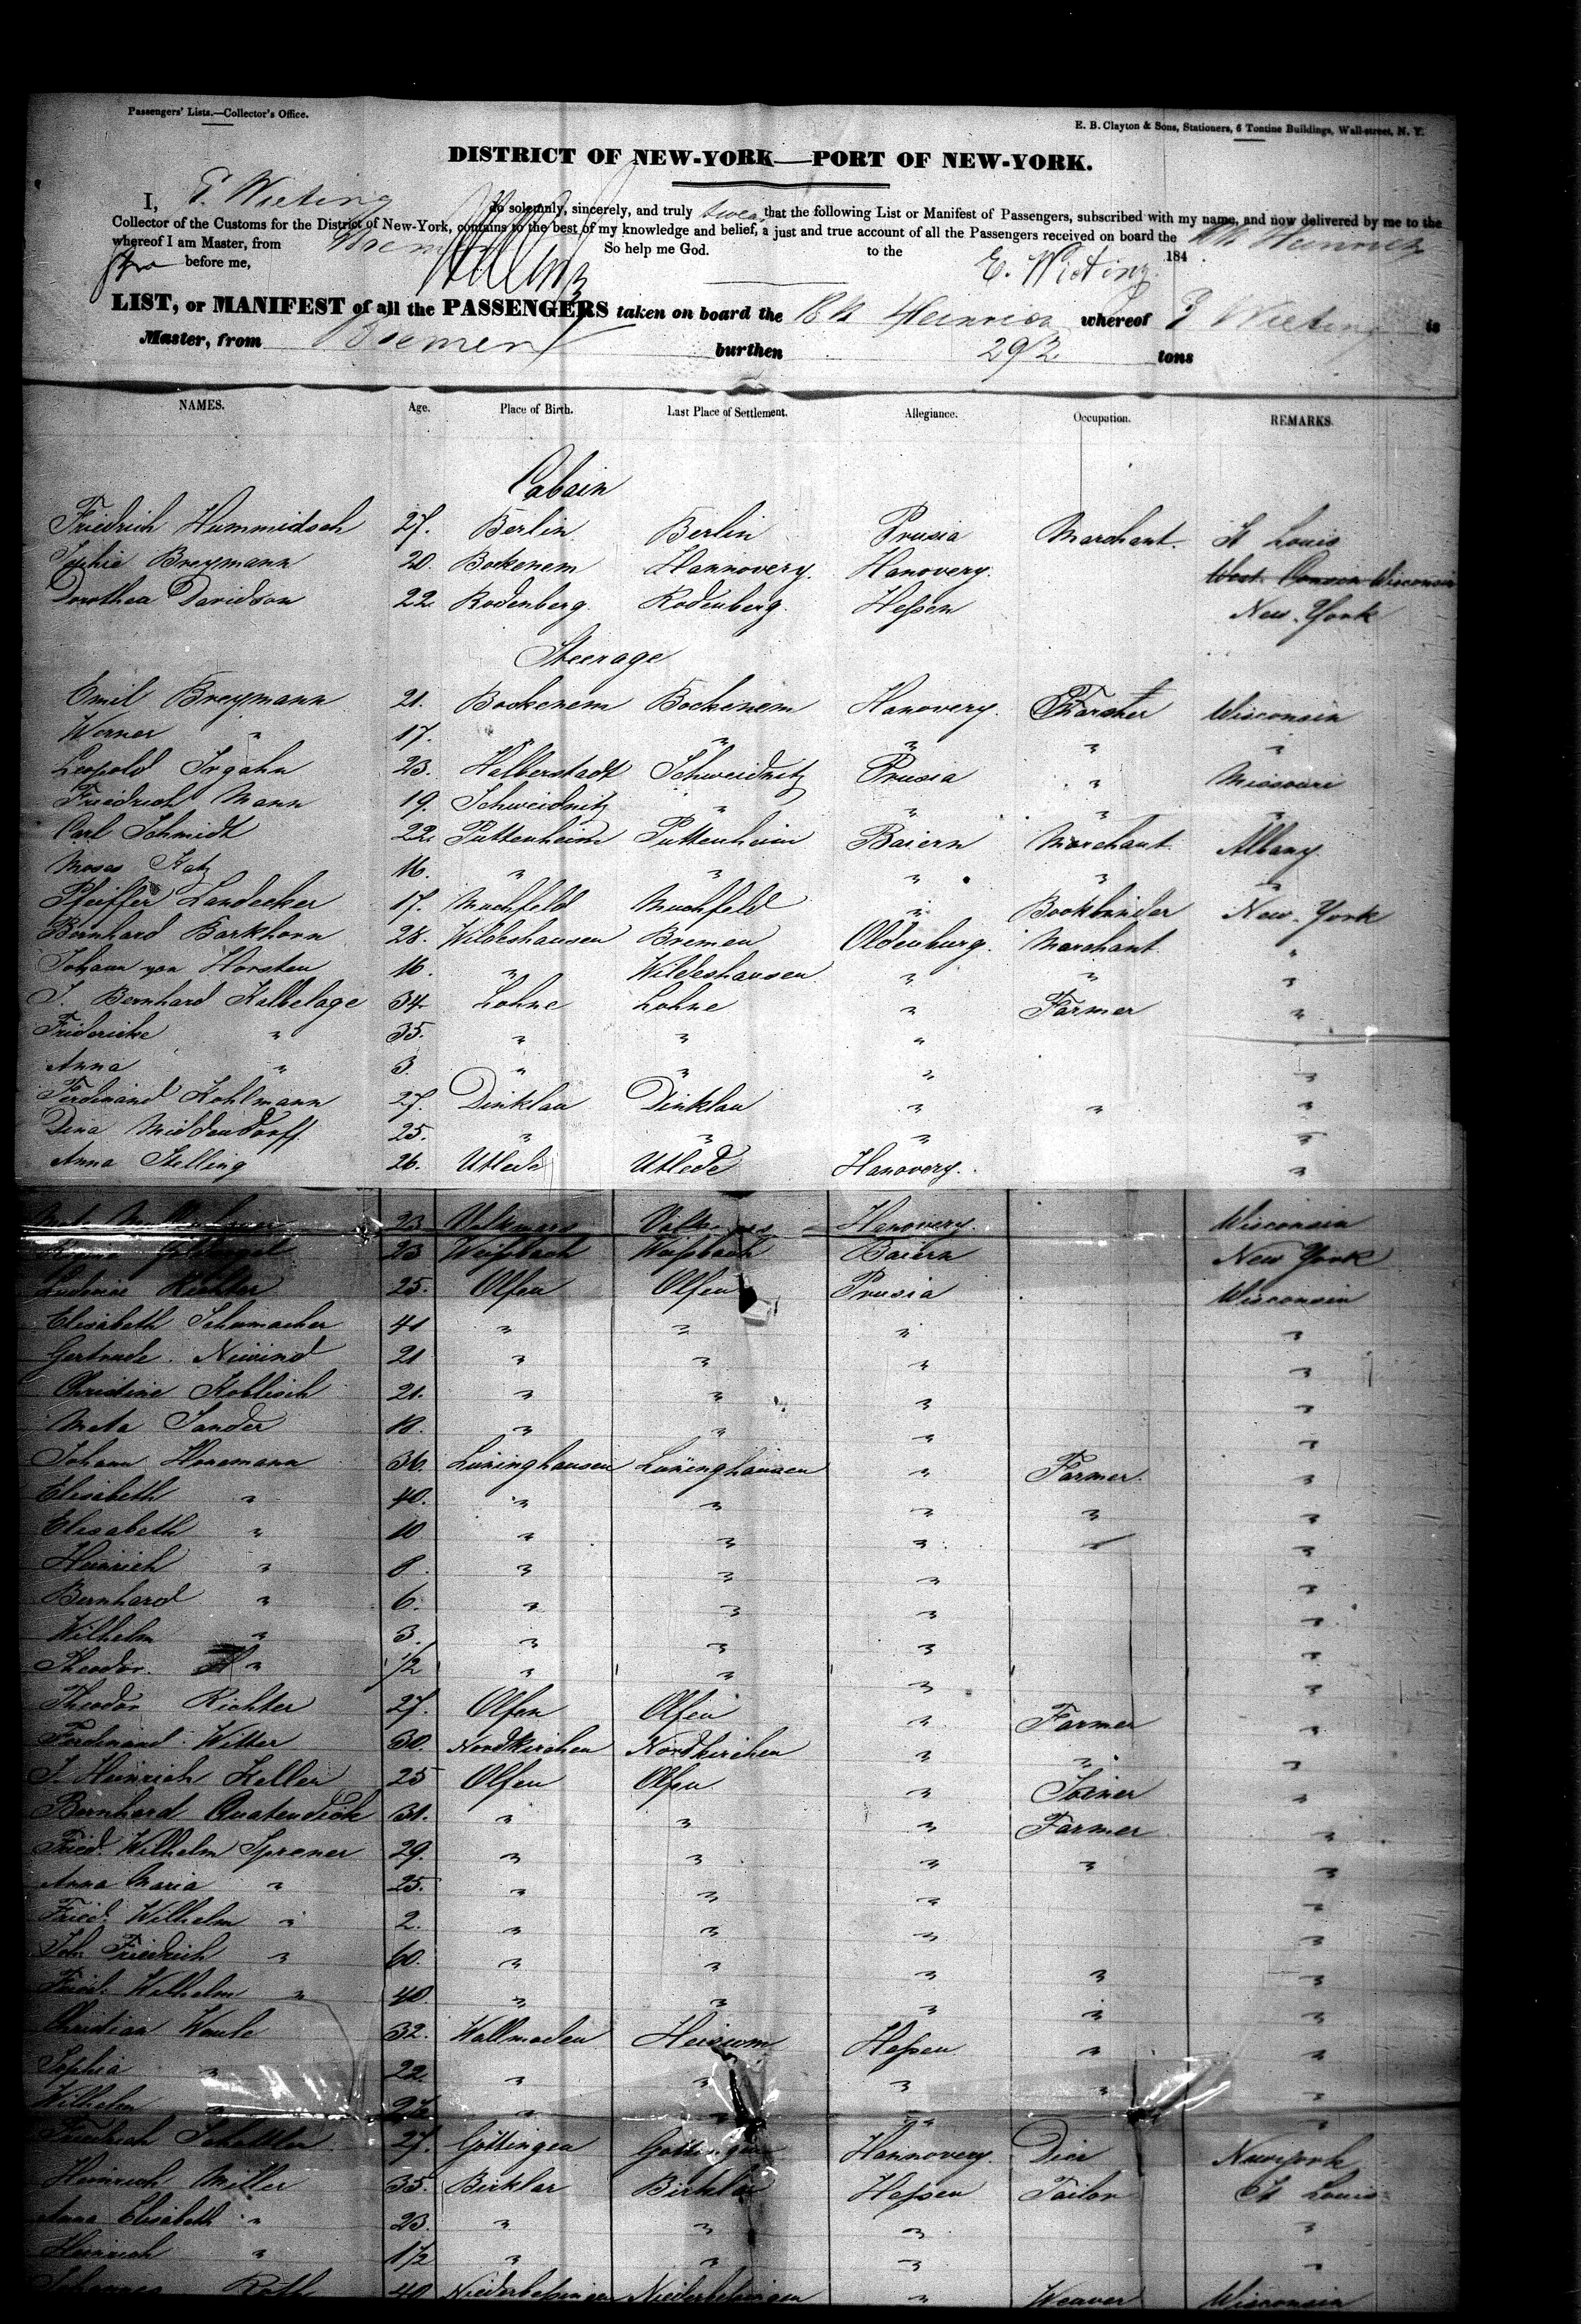 Passengers' Lists.—Collector's Office.
E. B. Clayton & Sons, Stationers, 6 Tontine Buildings, Wall-street, N. Y.
DISTRICT OF NEW-YORK—PORT OF NEW-YORK.
I, E. Wieting do solemnly, sincerely, and truly swear that the following List or Manifest of Passengers, subscribed with my name, and now delivered by me to the
Collector of the Customs for the District of New-York, contains to the best of my knowledge and belief, a just and true account of all the Passengers received on board the Bk Heinrich
whereof I am Master, from Bremen So help me God. to the 184
before me, E. Wieting
LIST, or MANIFEST of all the PASSENGERS taken on board the Bk Heinrich whereof E Wieting is
Master, from Bremen burthen 292 tons
NAMES. Age. Place of Birth. Last Place of Settlement. Allegiance. Occupation. REMARKS.
Cabain
Friedrich Hammidsch 27. Berlin Berlin Prusia Marchant. St Louis
Sophie Breymann 20. Bockenem Hannovery. Hanovery. Wisconsin
Dorothea Davidson 22. Rodenberg. Rodenberg. Hessen New-York
Steerage
Emil Breymann 21. Bockenem Bockenem Hanovery. Farmer Wisconsin
Werner " 17. " " " " "
Leopold Irgahn 23. Halberstadt Schweidnitz Prusia " Missouri
Friedrich Mann 19. Schweidnitz " " " "
Carl Schmidt 22. Puttenheim Puttenheim Baiern Marchant Albany
Moses Katz 16. " " " " "
Pfeiffer Landecker 17. Muchfeld Muchfeld " Bookbinder New-York
Bernhard Barkhorn 28. Wildeshausen Bremen Oldenburg. Marchant "
Johann von Horsten 16. " Wildeshausen " " "
J. Bernhard Kalbelage 34 Lohne Lohne " Farmer "
Fridericke " 35. " " "
Anna " 3. " " " "
Ferdinand Kohlmann 27. Dinklau Dinklau " " "
Dina Middendorff 25. " " " "
Anna Stelling 26. Utlede Utlede Hanovery. "
23 Volkmars Hanovery. Wisconsin
23 Weissbach Weissbach Baiern New York
Ludovine Richter 25. Olfen Olfen Prusia Wisconsin
Elisabeth Schumacher 41 " " " "
Gertrude Niewind 21 " " " "
Christine Koblisch 21. " " " "
Meta Sander 18. " " " "
Johann Horemann 36. Luninghausen Luninghausen " Farmer. "
Elisabeth " 40. " " " " "
Elisabeth " 10 " " " "
Heinrich " 8 " " " "
Bernhard " 6. " " " "
Wilhelm " 3. " " " "
Theodor. " 1/2 " " " "
Theodor Richter 27. Olfen Olfen " Farmer "
Ferdinand Witter 30. Nordkirchen Nordkirchen " " "
J. Heinrich Keller 25 Olfen Olfen " Joiner "
Bernhard Quatendick 31. " " " Farmer "
Fried. Wilhelm Sprener 29. " " " " "
Anna Maria " 25. " " " "
Fried. Wilhelm " 2. " " " "
Joh. Friedrich " 60. " " " " "
Fried. Wilhelm " 40. " " " " "
Christian Wente 32. Wallmoden Heisum Hessen " "
Sophia " 22. " " " " "
Wilhelm " " " " "
Friedrich Schettler 27. Göttingen Göttingen Hannovery. Dier New York
Heinrich Miller 35. Birklar Birklar Hessen Tailor St Louis
Anna Elisabeth " 23. " " " "
Heinrich " 1 1/2 " " " "
Johannes Roth 40 Niederbessingen Niederbessingen " Weaver Wisconsin